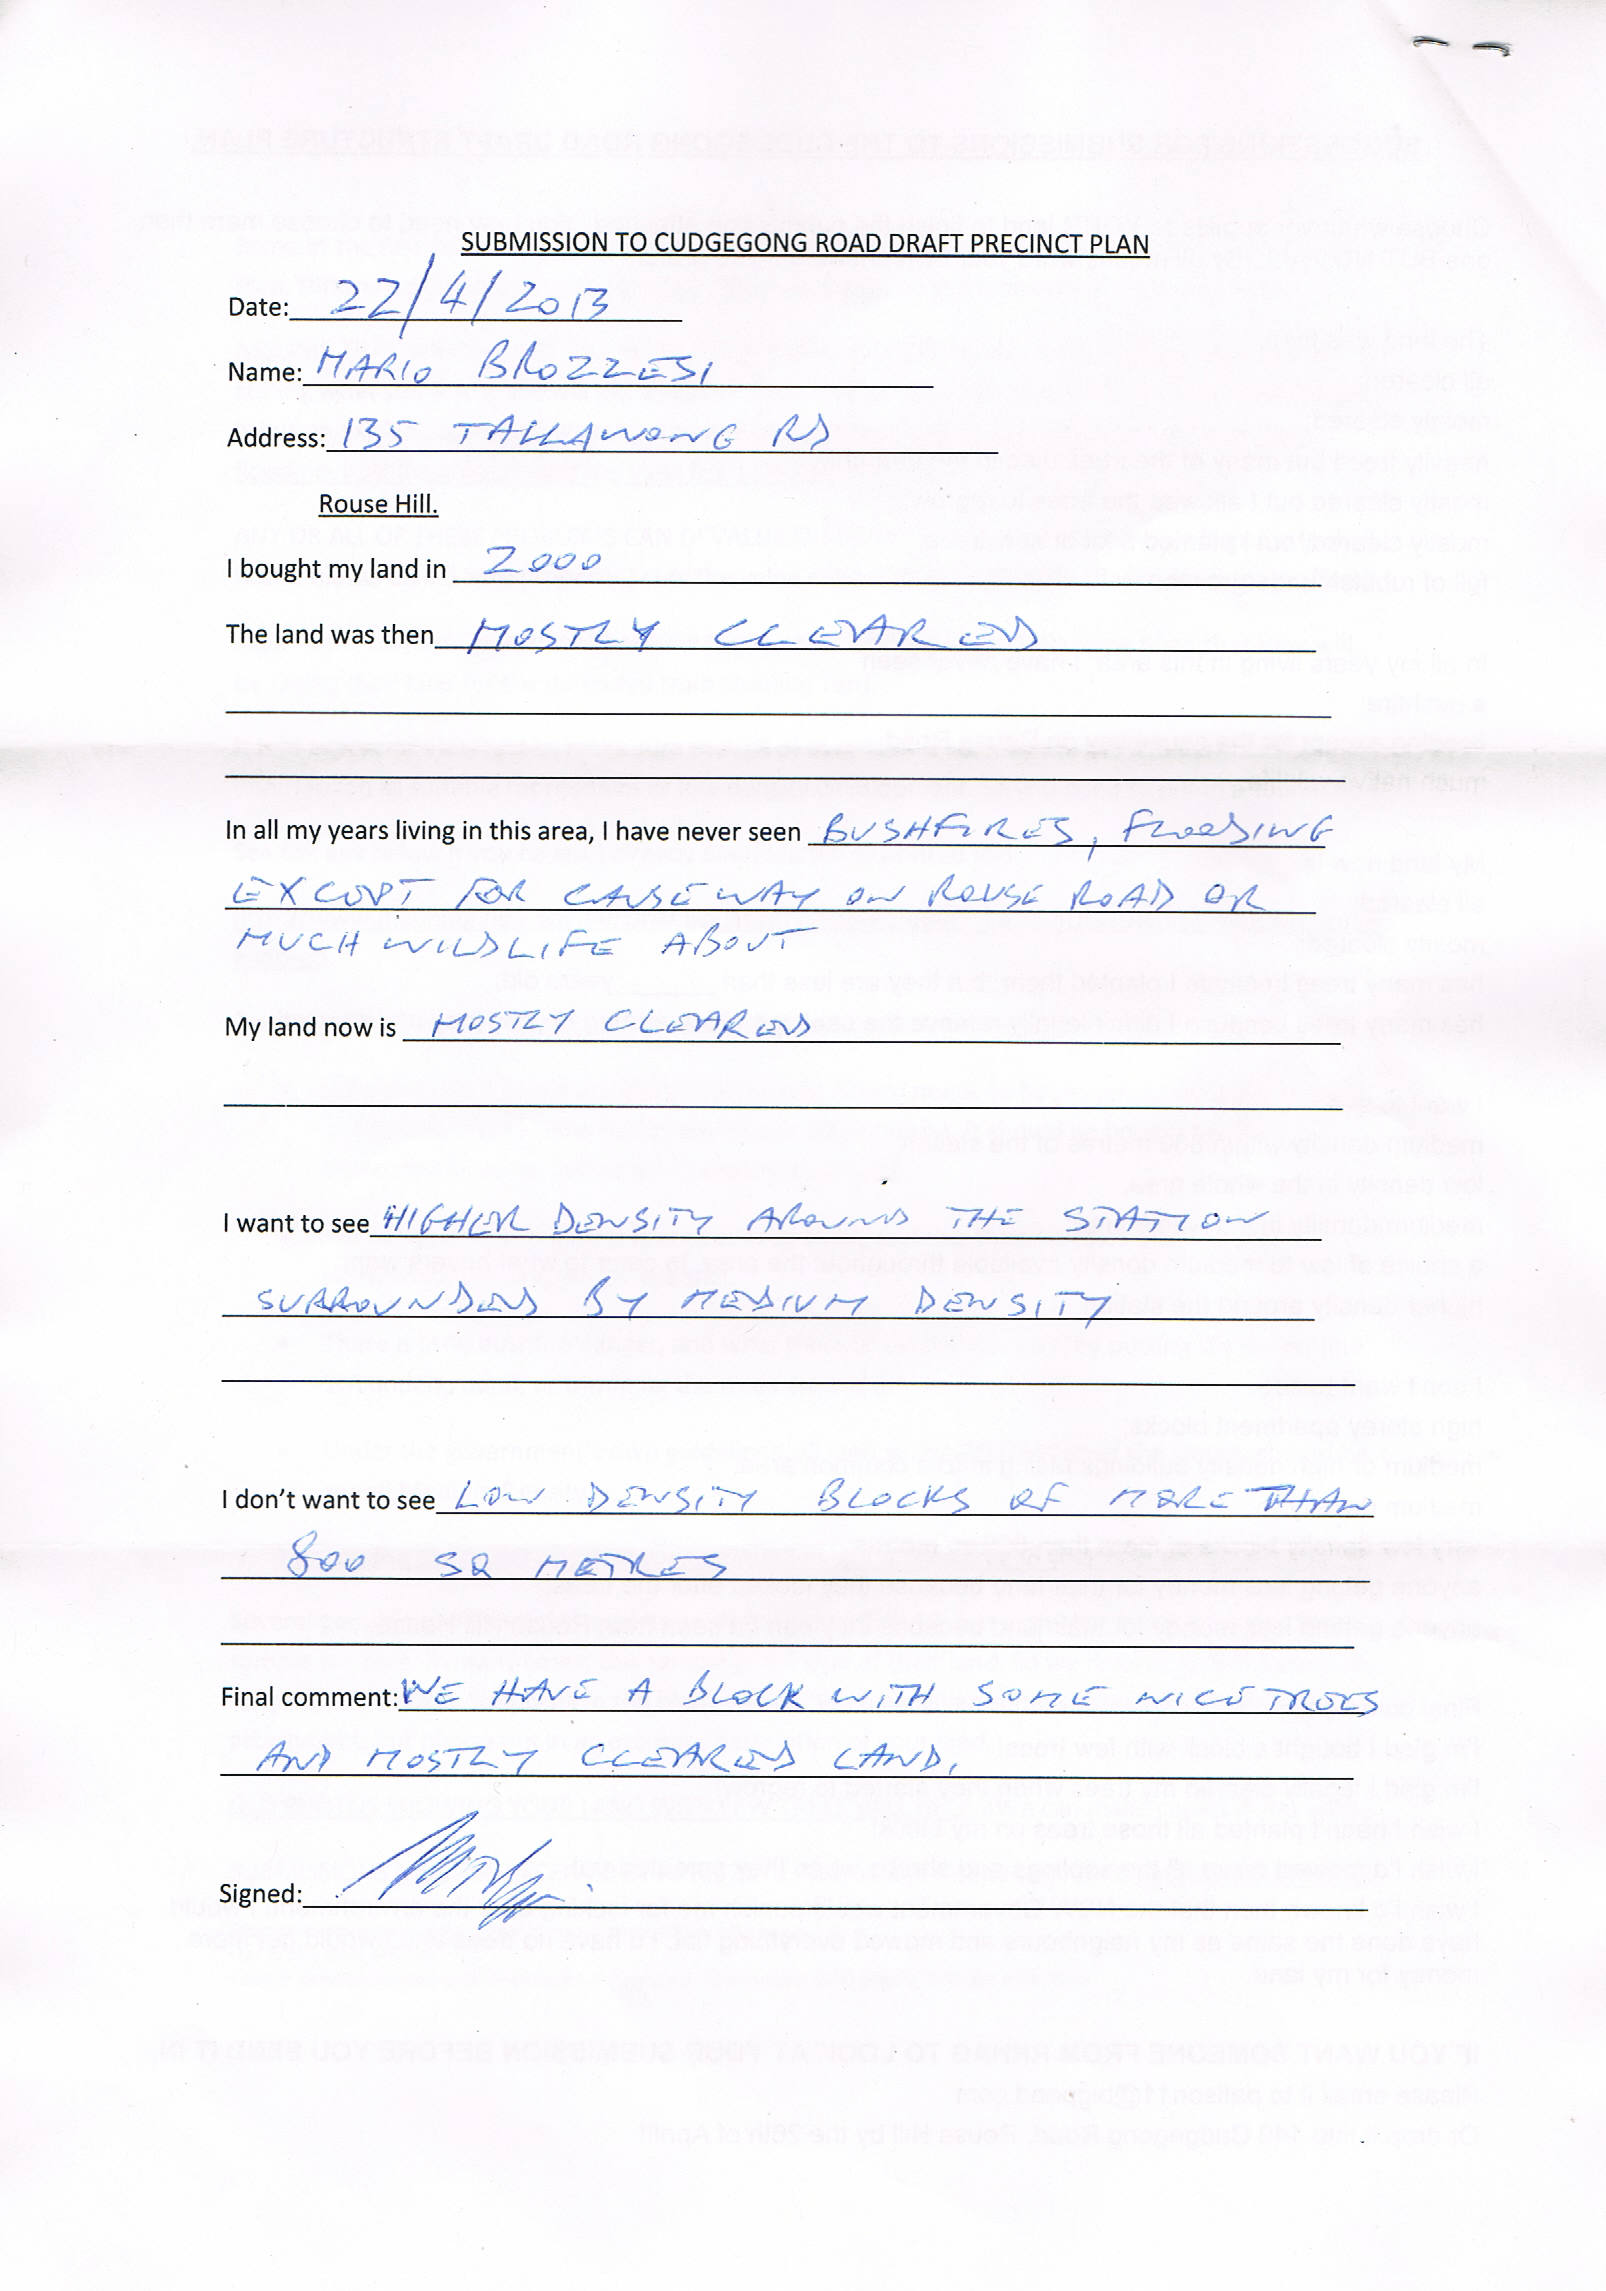 SUBMISSION TO CUDGEGONG ROAD DRAFT PRECINCT PLAN
Date: 22/4/2013
Name: MARIO BROZZESI
Address: 135 TALLAWONG RD
Rouse Hill.
I bought my land in 2000
The land was then MOSTLY CLEARED
In all my years living in this area, I have never seen BUSHFIRES, FLOODING
EXCEPT FOR CAUSEWAY ON ROUSE ROAD OR
MUCH WILDLIFE ABOUT
My land now is MOSTLY CLEARED
I want to see HIGHER DENSITY AROUND THE STATION
SURROUNDED BY MEDIUM DENSITY
I don't want to see LOW DENSITY BLOCKS OF MORE THAN
800 SQ METRES
Final comment: WE HAVE A BLOCK WITH SOME NICE TREES
AND MOSTLY CLEARED LAND.
Signed: